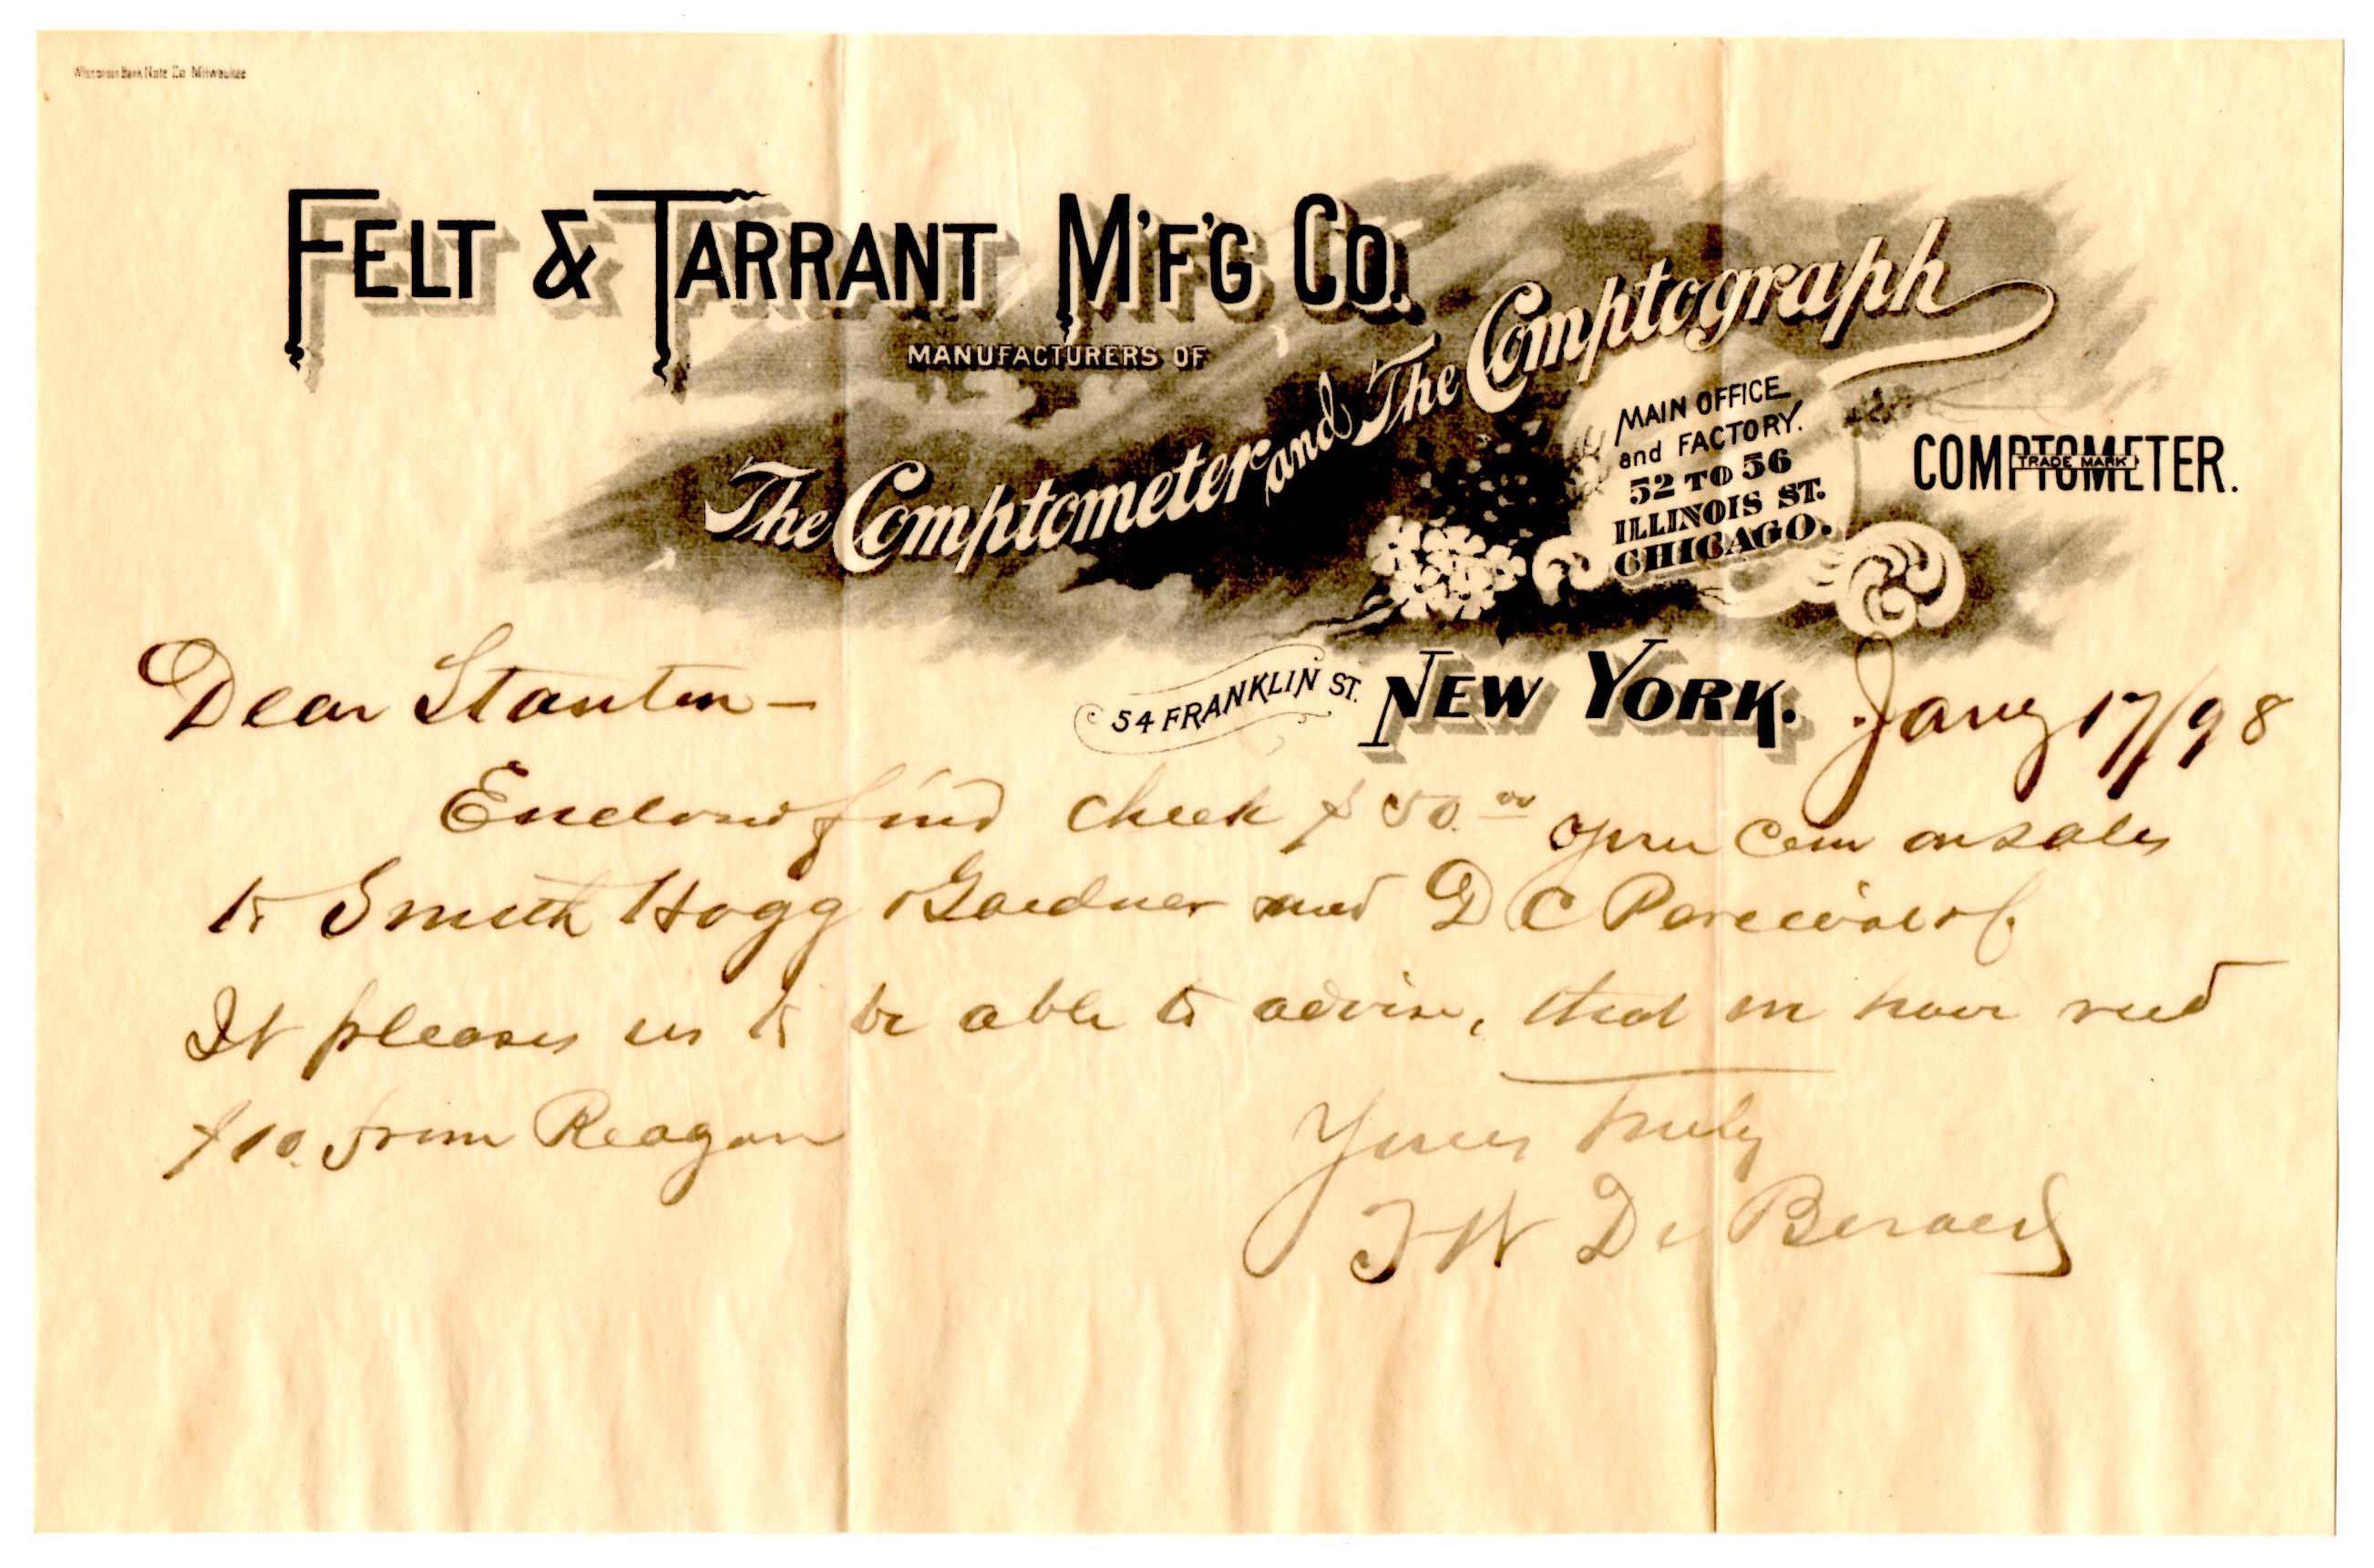 Wisconsin Bank Note Co Milwaukee
FELT & TARRANT M'F'G CO.
MANUFACTURERS OF
The Comptometer and The Comptograph
MAIN OFFICE
and FACTORY.
52 TO 56
ILLINOIS ST.
CHICAGO.
COMPTOMETER.
TRADE MARK
54 FRANKLIN ST. NEW YORK. Jany 17/98
Dear Stanton -
Enclosed find check $50.00 your Com on sales
to Smith Hogg Gardner and D C Percival
It pleases us to be able to advise, that we have recd
$10. from Reagan
Yours Truly
W De Beraerd